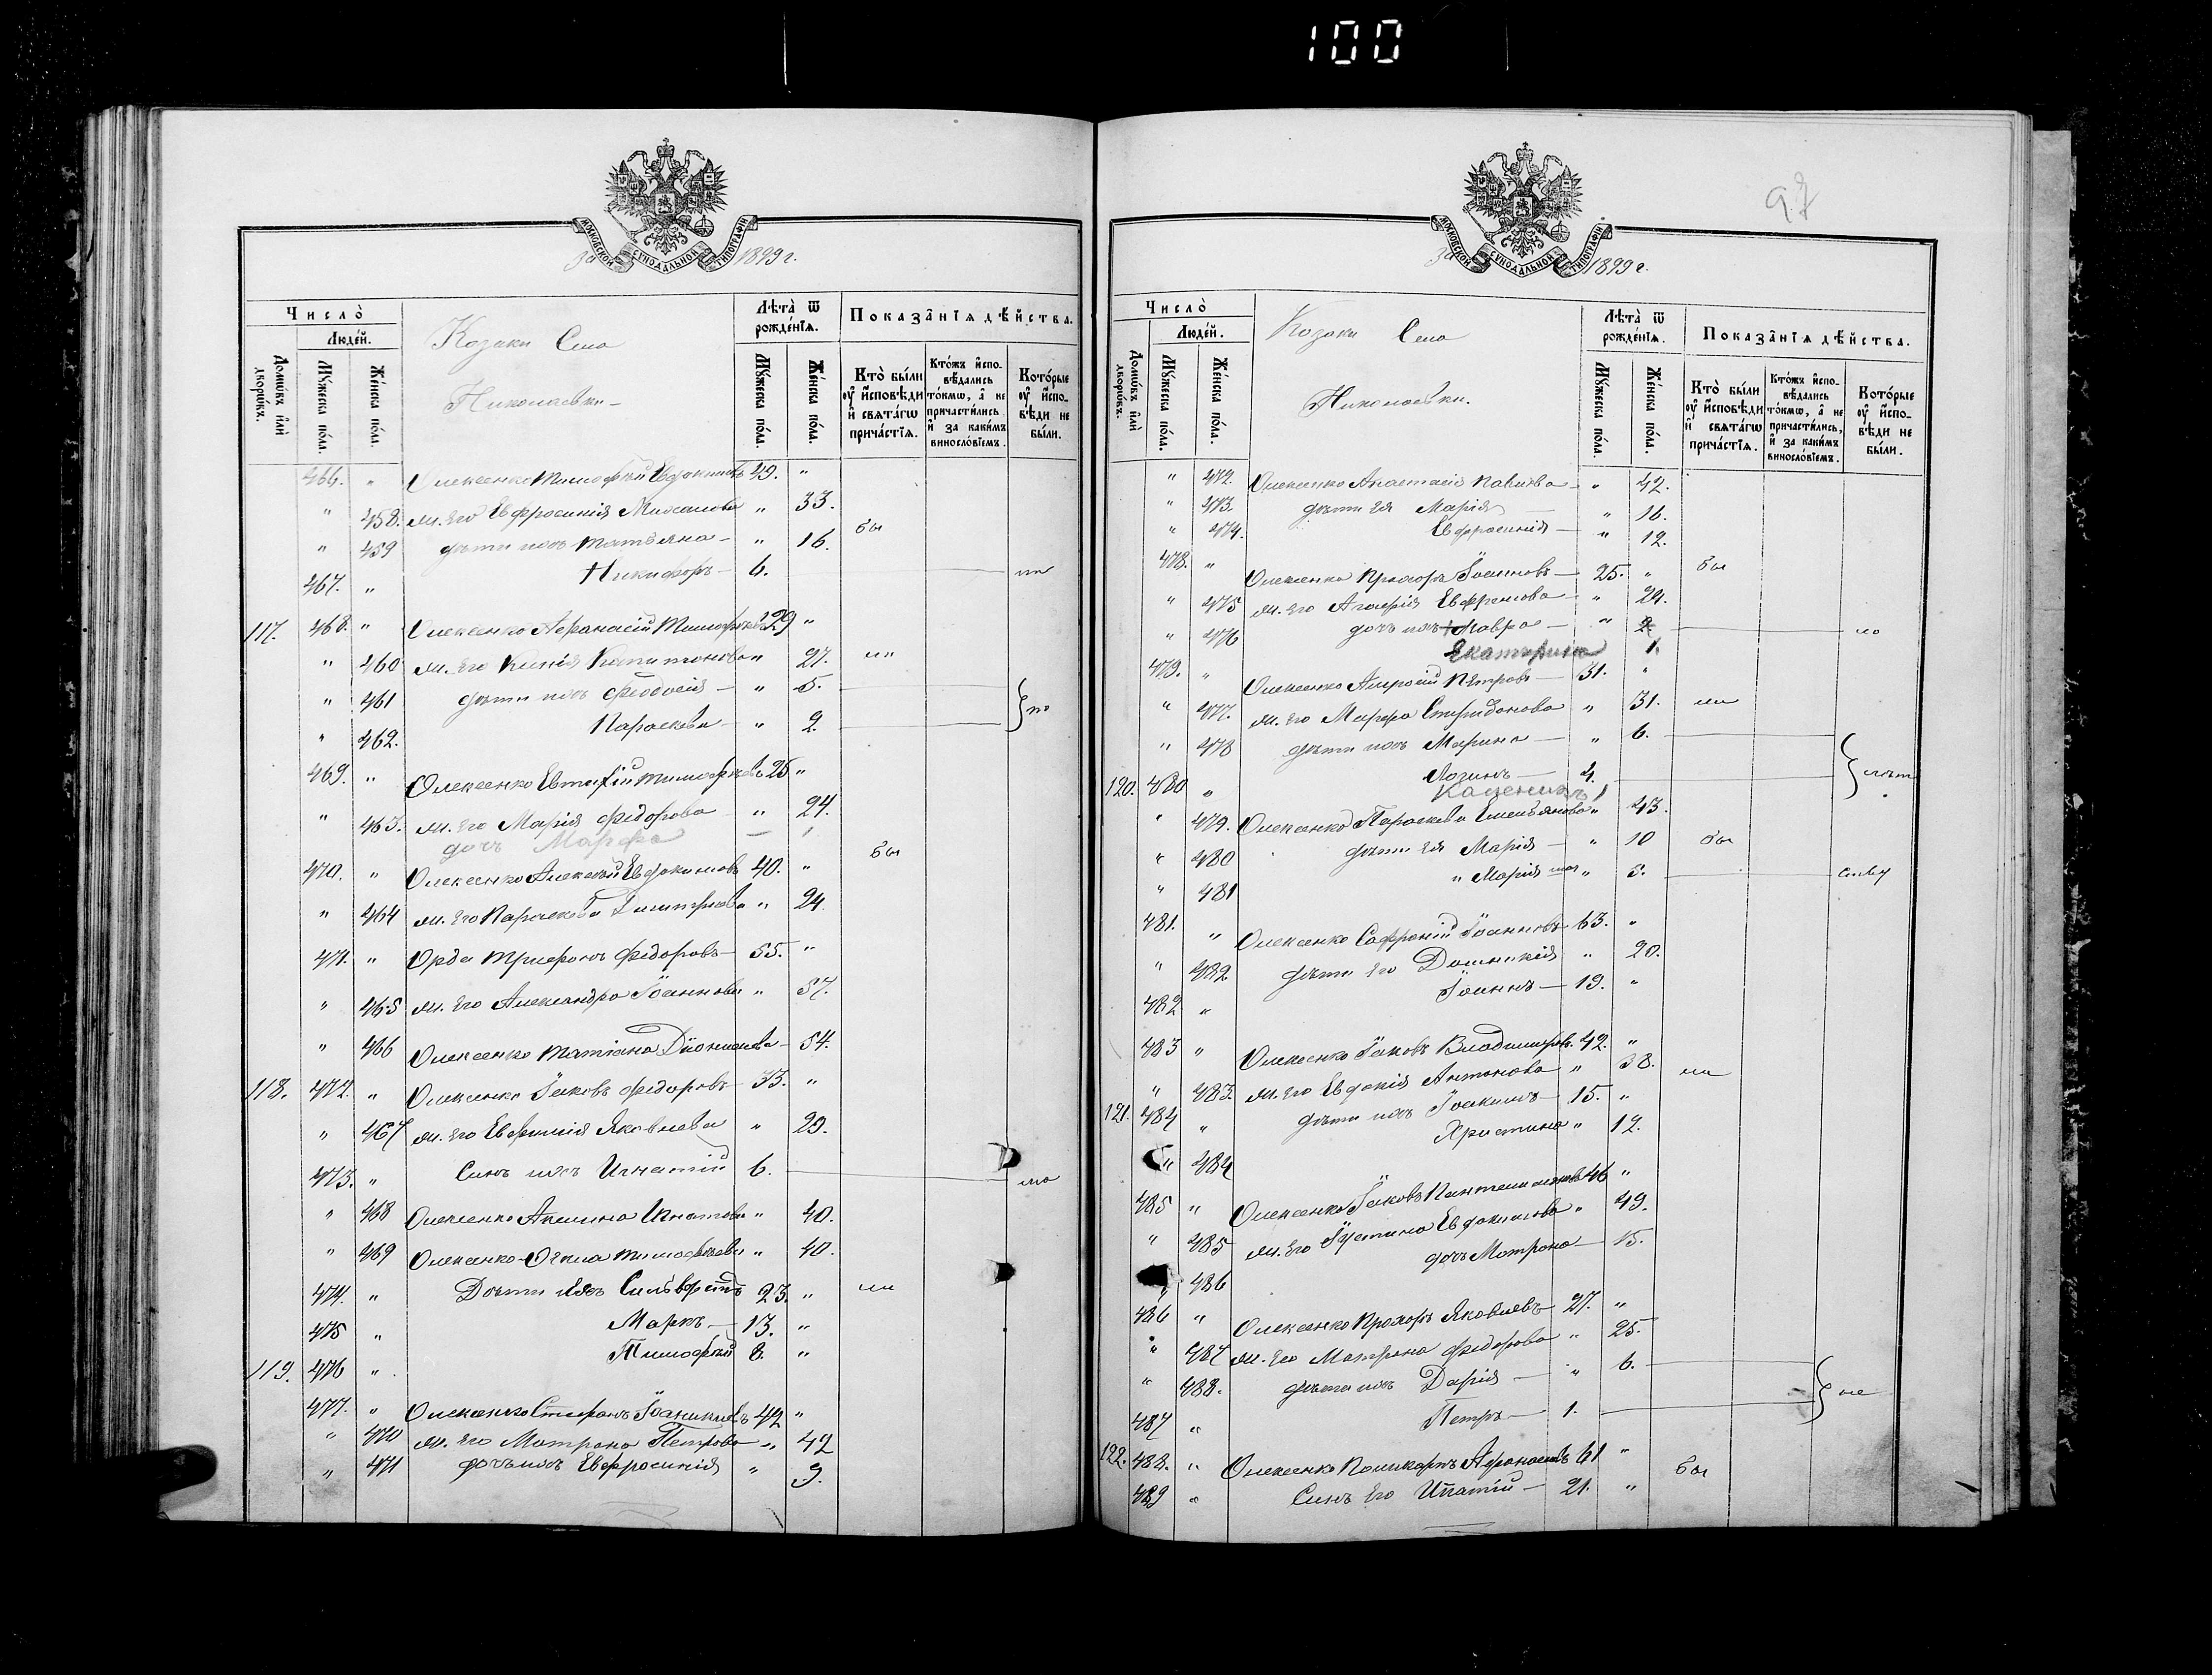 100
МОСКОВСКОЙ СѴНОДАЛЬНОЙ ТИПОГРАФІИ
За 1899 г.
Число̀
Люде́й.
Домѡ́въ и҆лѝ дворѡ́въ.
Мꙋ́жеска по́ла.
Же́нска по́ла.
Козаки Села
Николаевки
Лѣта̀ ѿ рожде́нїѧ.
Мꙋ́жеска по́ла.
Же́нска по́ла.
Показа̑нїѧ дѣ́йства.
Кто̀ бы́ли ᲂу҆ и҆́сповѣди и҆ свѧта́гѡ прича́стїѧ.
Кто́жъ и҆спо-вѣ́дались то́кмѡ, а҆ не причасти́лись и҆ за каки́мъ винослов́їемъ.
Кото́рые ᲂу҆ и҆́спо-вѣди не бы́ли.
466. " Олексенко Тимофѣй Евдокимовъ 49. "
" 458. ж. его Евфросинія Михаилова " 33.
" 459 дѣти ихъ Татьяна - " 16. бы
467. " Никифоръ - 6.
117. 468. " Олексенко Афанасій Тимофѣевъ 29 "
" 460 ж. его Ксенія Капитонова " 27. ли
" 461 дѣти ихъ Феодосія - " 5.
" 462. Параскева - " 2.
469. " Олексенко Евтихій Тимофѣевъ 25 "
" 463. ж. его Марія Федорова " 24.
дочь Марфа - 1
470. " Олексенко Алексѣй Евдокимовъ 40. " бы
" 464 ж. его Параскева Димитріева " 24.
471. " Орда Трифонъ Федоровъ - 55. "
" 465 ж. его Александра Іоаннова " 57.
" 466 Олексенко Татіана Діонисіева - 54.
118. 472. " Олексенко Іаковъ Федоровъ - 33. "
" 467 ж. его Евфимія Яковлева " 29.
473. " Сынъ ихъ Игнатій 6.
" 468 Олексенко Акилина Игнатова " 40.
" 469 Олексенко Тимофѣева " 40.
474. " Дѣти Сильвестръ 23. " ли
475 " Маркъ - 13. "
119. 476 " Тимофѣй 8. "
477. " Олексенко Стефанъ Іоаникіевъ 42 "
" 470 ж. его Матрона Петрова " 42
" 471 дочь ихъ Евфросинія " 9.
97
МОСКОВСКОЙ СѴНОДАЛЬНОЙ ТИПОГРАФІИ
За 1899 г.
Число̀
Люде́й.
Домѡ́въ и҆лѝ дворѡ́въ.
Мꙋ́жеска по́ла.
Же́нска по́ла.
Козаки Села
Николаевки.
Лѣта̀ ѿ рожде́нїѧ.
Мꙋ́жеска по́ла.
Же́нска по́ла.
Показа̑нїѧ дѣ́йства.
Кто̀ бы́ли ᲂу҆ и҆́сповѣди и҆ свѧта́гѡ прича́стїѧ.
Кто́жъ и҆спо-вѣ́дались то́кмѡ, а҆ не причасти́лись, и҆ за каки́мъ винослов́їемъ.
Кото́рые ᲂу҆ и҆́спо-вѣди не бы́ли.
" 472. Олексенко Анастасія Павлова - " 42.
" 473. дѣти ея Марія " 16.
" 474. Евфросинія - " 12.
478. " Олексенко Прохоръ Іоанновъ - 25. " бы
" 475 ж. его Агафія Евфремова " 24.
" 476 дочь ихъ Мавра - " 2
Екатерина 1.
479. " Олексенко Амвросій Петровъ - 31. "
" 477. ж. его Марфа Спиридонова " 31. ли
" 478 дѣти ихъ Марина - " 6.
120. 480 " Логинъ - 4.
1
" 479. Олексенко Параскева Емельянова " 43.
" 480 дѣти ея Марія - " 10 бы
" 481 " Марія " 3.
481. " Олексенко Софроній Іоанновъ 63. "
" 482 дѣти его Домникія " 20.
482 " Іоаннъ - 19. "
483 " Олексенко Іаковъ Владимировъ 42. "
" 483. ж. его Евдокія Антонова " 38. ли
121. 484 " дѣти ихъ Іоакимъ - 15. "
" 484 Христина " 12.
485 " Олексенко Іаковъ Пантелимоновъ 46 "
" 485 ж. его Іустина Евдокимова " 49.
486 дочь Матрона - 15.
486 " Олексенко Прохоръ Яковлевъ 27. "
" 487 ж. его Матрона Федорова " 25.
" 488. дѣти ихъ Дарія - " 6.
487 " Петръ - 1.
122. 488. " Олексенко Поликарпъ Афанасіевъ 61 "
489 " Сынъ его Ипатій - 21. " бы